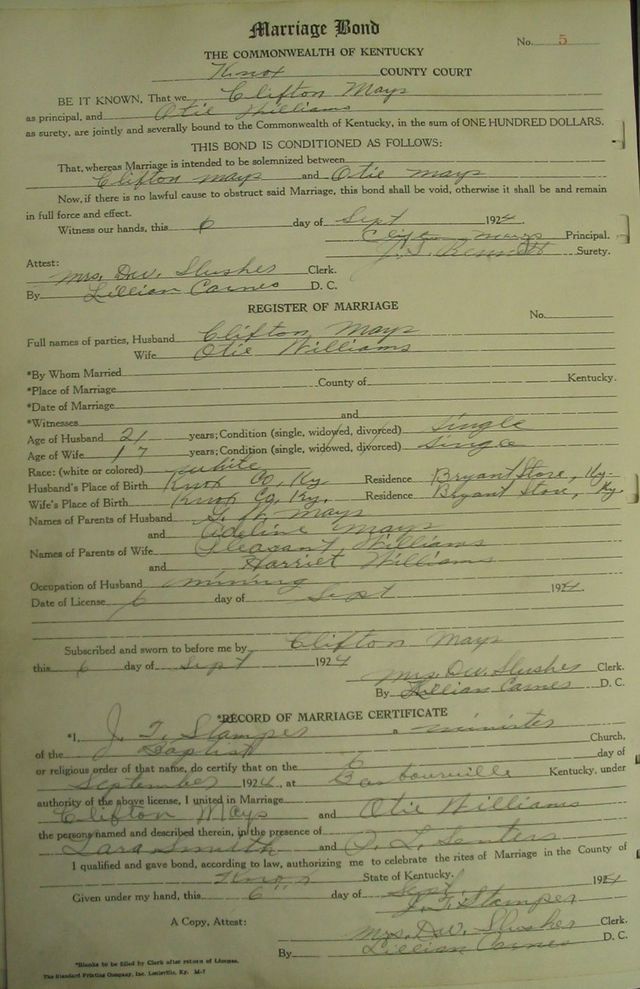 Marriage Bond
No. 5
THE COMMONWEALTH OF KENTUCKY
Knox COUNTY COURT
BE IT KNOWN, That we Clifton Mays
as principal, and Otie Williams
as surety, are jointly and severally bound to the Commonwealth of Kentucky, in the sum of ONE HUNDRED DOLLARS.
THIS BOND IS CONDITIONED AS FOLLOWS:
That, whereas Marriage is intended to be solemnized between
Clifton Mays and Otie Mays
Now, if there is no lawful cause to obstruct said Marriage, this bond shall be void, otherwise it shall be and remain
in full force and effect.
Witness our hands, this 6 day of Sept 1924
Clifton Mays Principal.
Surety.
Attest:
Mrs. D.W. Slusher Clerk.
By Lillian Carnes D. C.
REGISTER OF MARRIAGE
No.
Full names of parties, Husband Clifton Mays
Wife Otie Williams
*By Whom Married
*Place of Marriage County of Kentucky.
*Date of Marriage
*Witnesses and
Age of Husband 21 years; Condition (single, widowed, divorced) Single
Age of Wife 17 years; Condition (single, widowed, divorced) Single
Race: (white or colored) White
Husband's Place of Birth Knox Co, Ky Residence Bryant Store, Ky.
Wife's Place of Birth Knox Co, Ky. Residence Bryant Store, Ky.
Names of Parents of Husband Mays
and Adeline Mays
Names of Parents of Wife Pleasant Williams
and Harriet Williams
Occupation of Husband mining
Date of License 6 day of Sept 1924.
Subscribed and sworn to before me by Clifton Mays
this 6 day of Sept 1924
Mrs. D.W. Slusher Clerk.
By Lillian Carnes D. C.
*RECORD OF MARRIAGE CERTIFICATE
*I, J. T. Stamper a minister
of the Baptist Church,
or religious order of that name, do certify that on the 6 day of
September 1924, at Barbourville Kentucky, under
authority of the above license, I united in Marriage
Clifton Mays and Otie Williams
the persons named and described therein, in the presence of
Smith and Senters
I qualified and gave bond, according to law, authorizing me to celebrate the rites of Marriage in the County of
Knox State of Kentucky.
Given under my hand, this 6" day of Sept 1924
J. T. Stamper
A Copy, Attest:
Mrs. D.W. Slusher Clerk.
By Lillian Carnes D. C.
*Blanks to be filled by Clerk after return of License.
The Standard Printing Company, Inc. Louisville, Ky. M-7